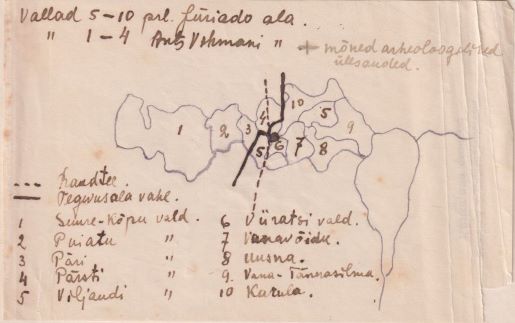 Vallad 5–10 prl. Jüriado ala.
" 1–4 Ants Vohmani " + mõned arheoloogilised
ülesanded.
10
4
5
1
2
3
9
5
6
7
8
--- Raudtee.
— Tegevusala vahe.
1 Suure-Kõpu vald.
2 Puiatu "
3 Päri "
4 Pärsti "
5 Viljandi "
6 Viiratsi vald.
7 Vanavõidu.
8 Uusna.
9. Vana-Tännasilma.
10 Karula.